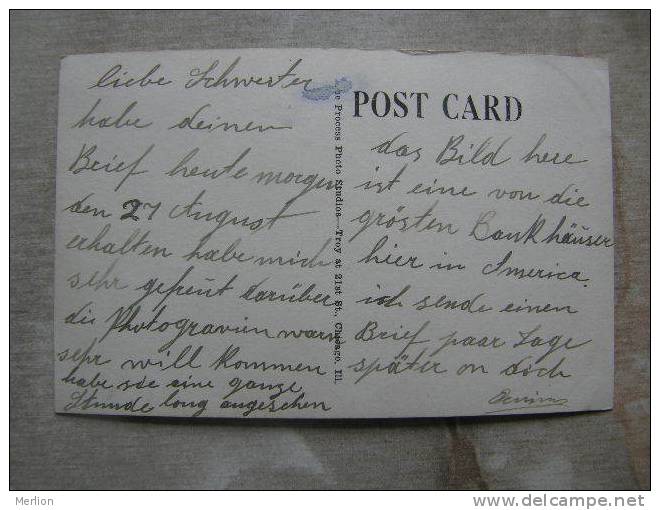 liebe Schwester
habe deinen
Brief heute morgen
den 27 August
erhalten habe mich
sehr gefreut darüber
die Photogravien warn
sehr will kommen
habe sie eine ganze
Stunde long angesehen
The Process Photo Studios—Troy at 21st St., Chicago, Ill.
POST CARD
das Bild here
ist eine von die
grösten Bank häuser
hier in America.
ich sende einen
Brief paar Tage
später on doch
Merlion
www.delcampe.net